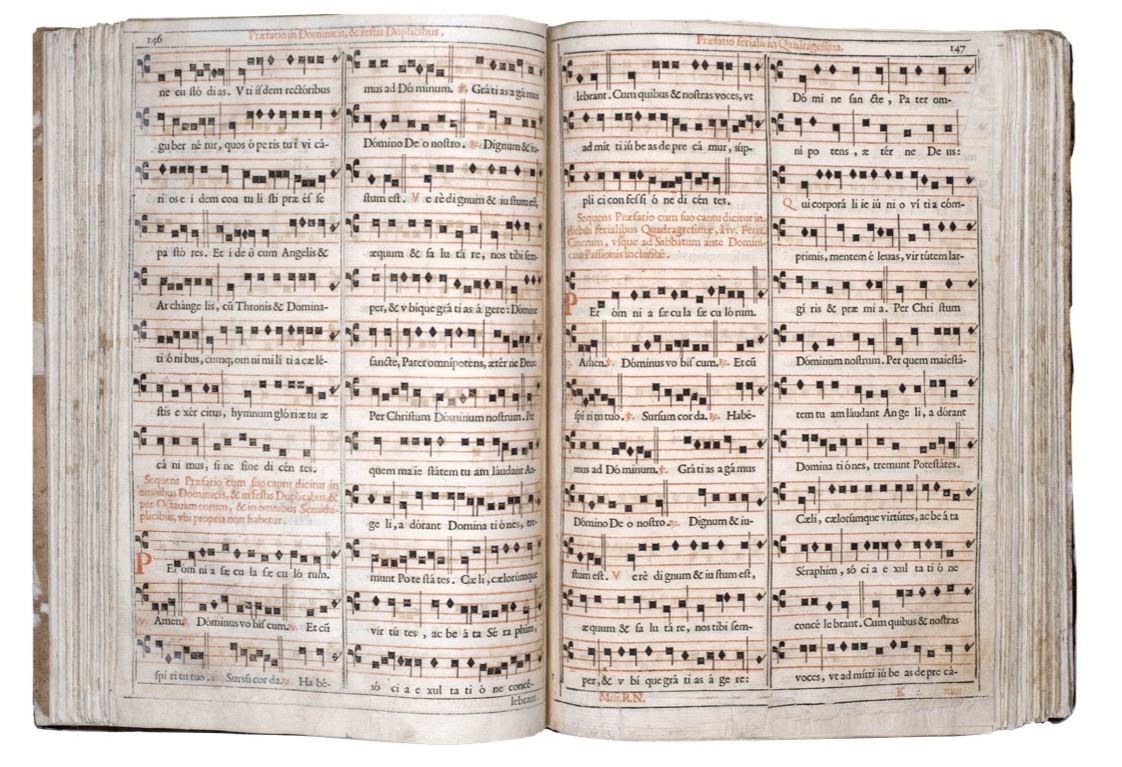 146
Præfatio in Dominicis, & festis Duplicibus.
ne cu stó di as. V ti ísdem rectóribus
gu ber né tur, quos ó pe ris tu i vi cá-
ri os e i dem con tu li sti præ és se
pa stó res. Et i de ò cum Angelis &
Archánge lis, cũ Thronis & Domina-
ti ó ni bus, cumq; om ni mi lí ti a cæ lé-
stis e xér citus, hymnum gló ri æ tu æ
cá ni mus, si ne fine di cén tes.
Sequens Præfatio cum suo cantu dicitur in
omnibus Dominicis, & in festis Duplicibus, &
per Octauam eorum, & in omnibus Semidu-
plicibus, vbi propria non habetur.
PEr om ni a sæ cu la sæ cu ló rum.
Amen. Dóminus vo bis cum. Et cũ
spí ri tu tuo. Sursũ cor da. Ha bé-
mus ad Dó minum. Grá ti as a gá mus
Dómino De o nostro. Dignum & iu-
stum est. V e rè di gnum & iu stum est,
æquum & sa lu tá re, nos tibi sem-
per, & v bíque grá ti as á gere: Dómine
sancte, Pater omnípotens, ætér ne Deus:
Per Christum Dóminum nostrum. Per
quem ma ie státem tu am láudant An-
ge li, a dórant Domina ti ó nes, tre-
munt Po te stá tes. Cæ li, cælorúmque
vir tú tes, ac be á ta Sé ra phim,
só ci a e xul ta ti ó ne concé-
lebrant.
Præfatio ferialis in Quadragesima.
147
lebrant. Cum quibus & nostras voces, vt
ad mít ti iú be as de pre cá mur, súp-
pli ci con fes si ó ne di cén tes.
Sequens Præfatio cum suo cantu dicitur in
diebus ferialibus Quadragesimæ, à iv. Feria
Cinerum, vsque ad Sabbatum ante Domini-
cam Passionis inclusiuè.
PEr óm ni a sæ cu la sæ cu ló rum.
Amen. Dóminus vo bis cum. Et cũ
spí ri tu tuo. Sursum cor da. Habé-
mus ad Dó minum. Grá ti as a gá mus
Dómino De o nostro. Dignum & iu-
stum est. V erè di gnum & iu stum est,
æquum & sa lu tá re, nos tibi sem-
per, & v bí que grá ti as á ge re:
Miss.R.N.
Dó mi ne san cte, Pa ter om-
ní po tens, æ tér ne De us:
Q ui corporá li ie iú ni o ví ti a cóm-
primis, mentem é leuas, vir tútem lar-
gí ris & præ mi a. Per Chri stum
Dóminum nostrum. Per quem maiestá-
tem tu am láudant An ge li, a dórant
Domina ti ónes, tremunt Potestátes.
Cæli, cælorúmque virtútes, ac be á ta
Séraphim, só ci a e xul ta ti ó ne
concé le brant. Cum quibus & nostras
voces, vt ad mítti iú be as de pre cá-
K
mur